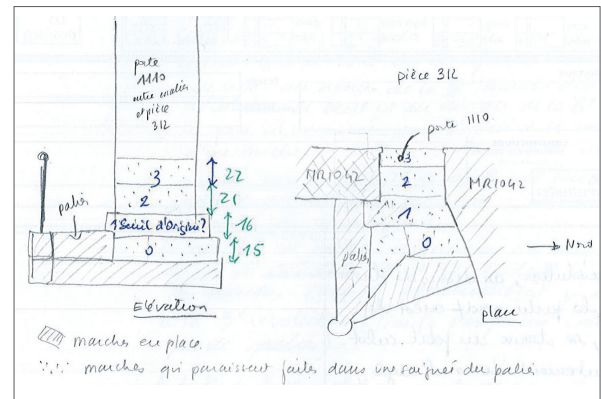 porte
1110
entre escalier
et pièce
312
3
22
2
21
1 Seuil d'Origine?
16
0
15
palier
Elévation
pièce 312
porte 1110
3
MR1042
2
MR1042
1
0
palier
→ Nord
plan
marches en place.
marches qui paraissent faites dans une saignée du palier